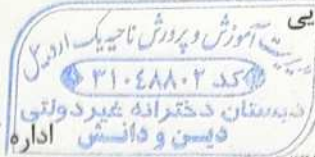 یی
مدیریت آموزش و پرورش ناحیه یک اردبیل
کد ۳۱۰٤۸۸۰۲
دبستان دخترانه غیر دولتی
دیـن و دانـش اداره